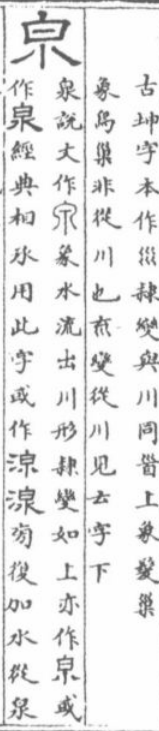 古坤字本作巛隸變與川同𩠐上象髮巢
象鳥巢非從川也㐬變從川見云字下
泉說文作篆水流出川形隸變如上亦作或
作泉經典相承用此字或作湶旁復加水從泉